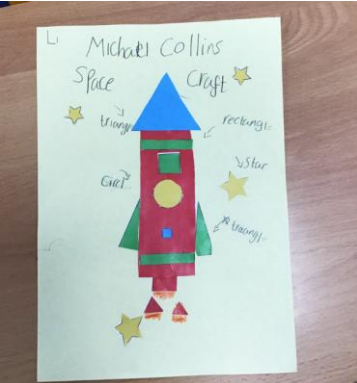 Li
Michael Collins
Space Craft
triangl
rectangle
Star
Circl
triangl